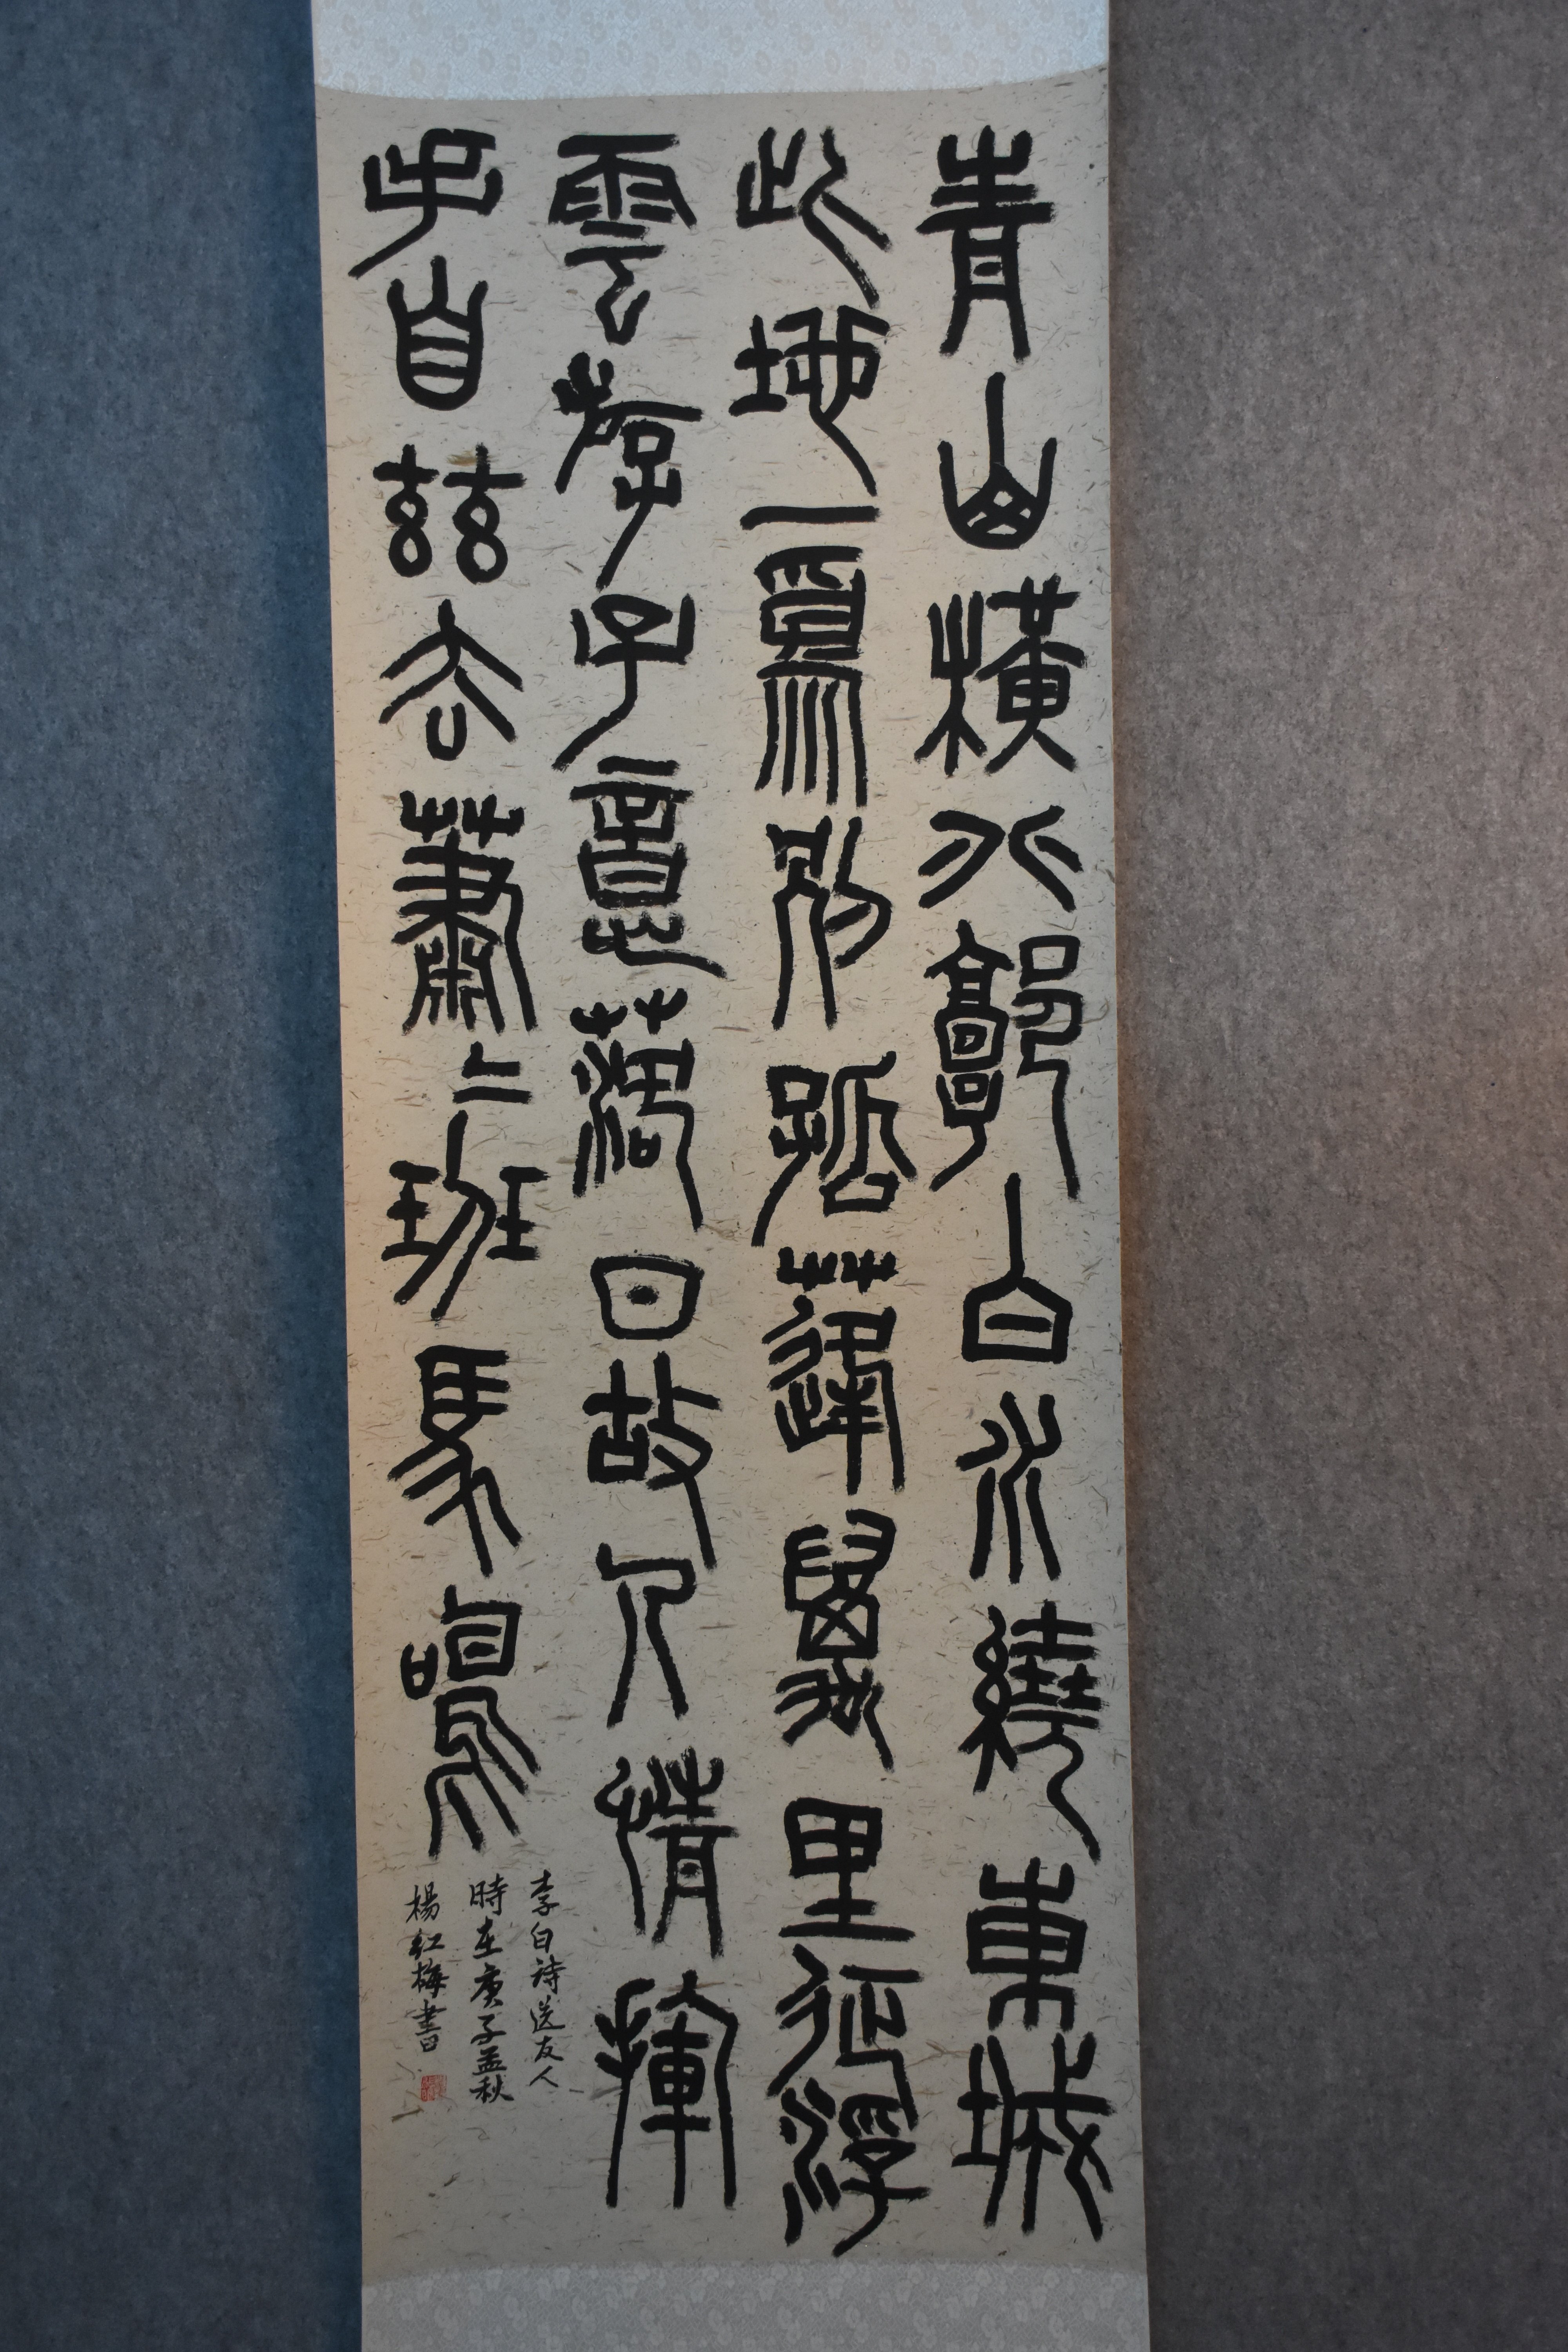 青山橫北郭白水繞東城
此地一爲別孤蓬萬里征浮
雲游子意落日故人情揮
手自茲去蕭〻班馬鳴
李白詩送友人
時在庚子孟秋
楊紅梅書